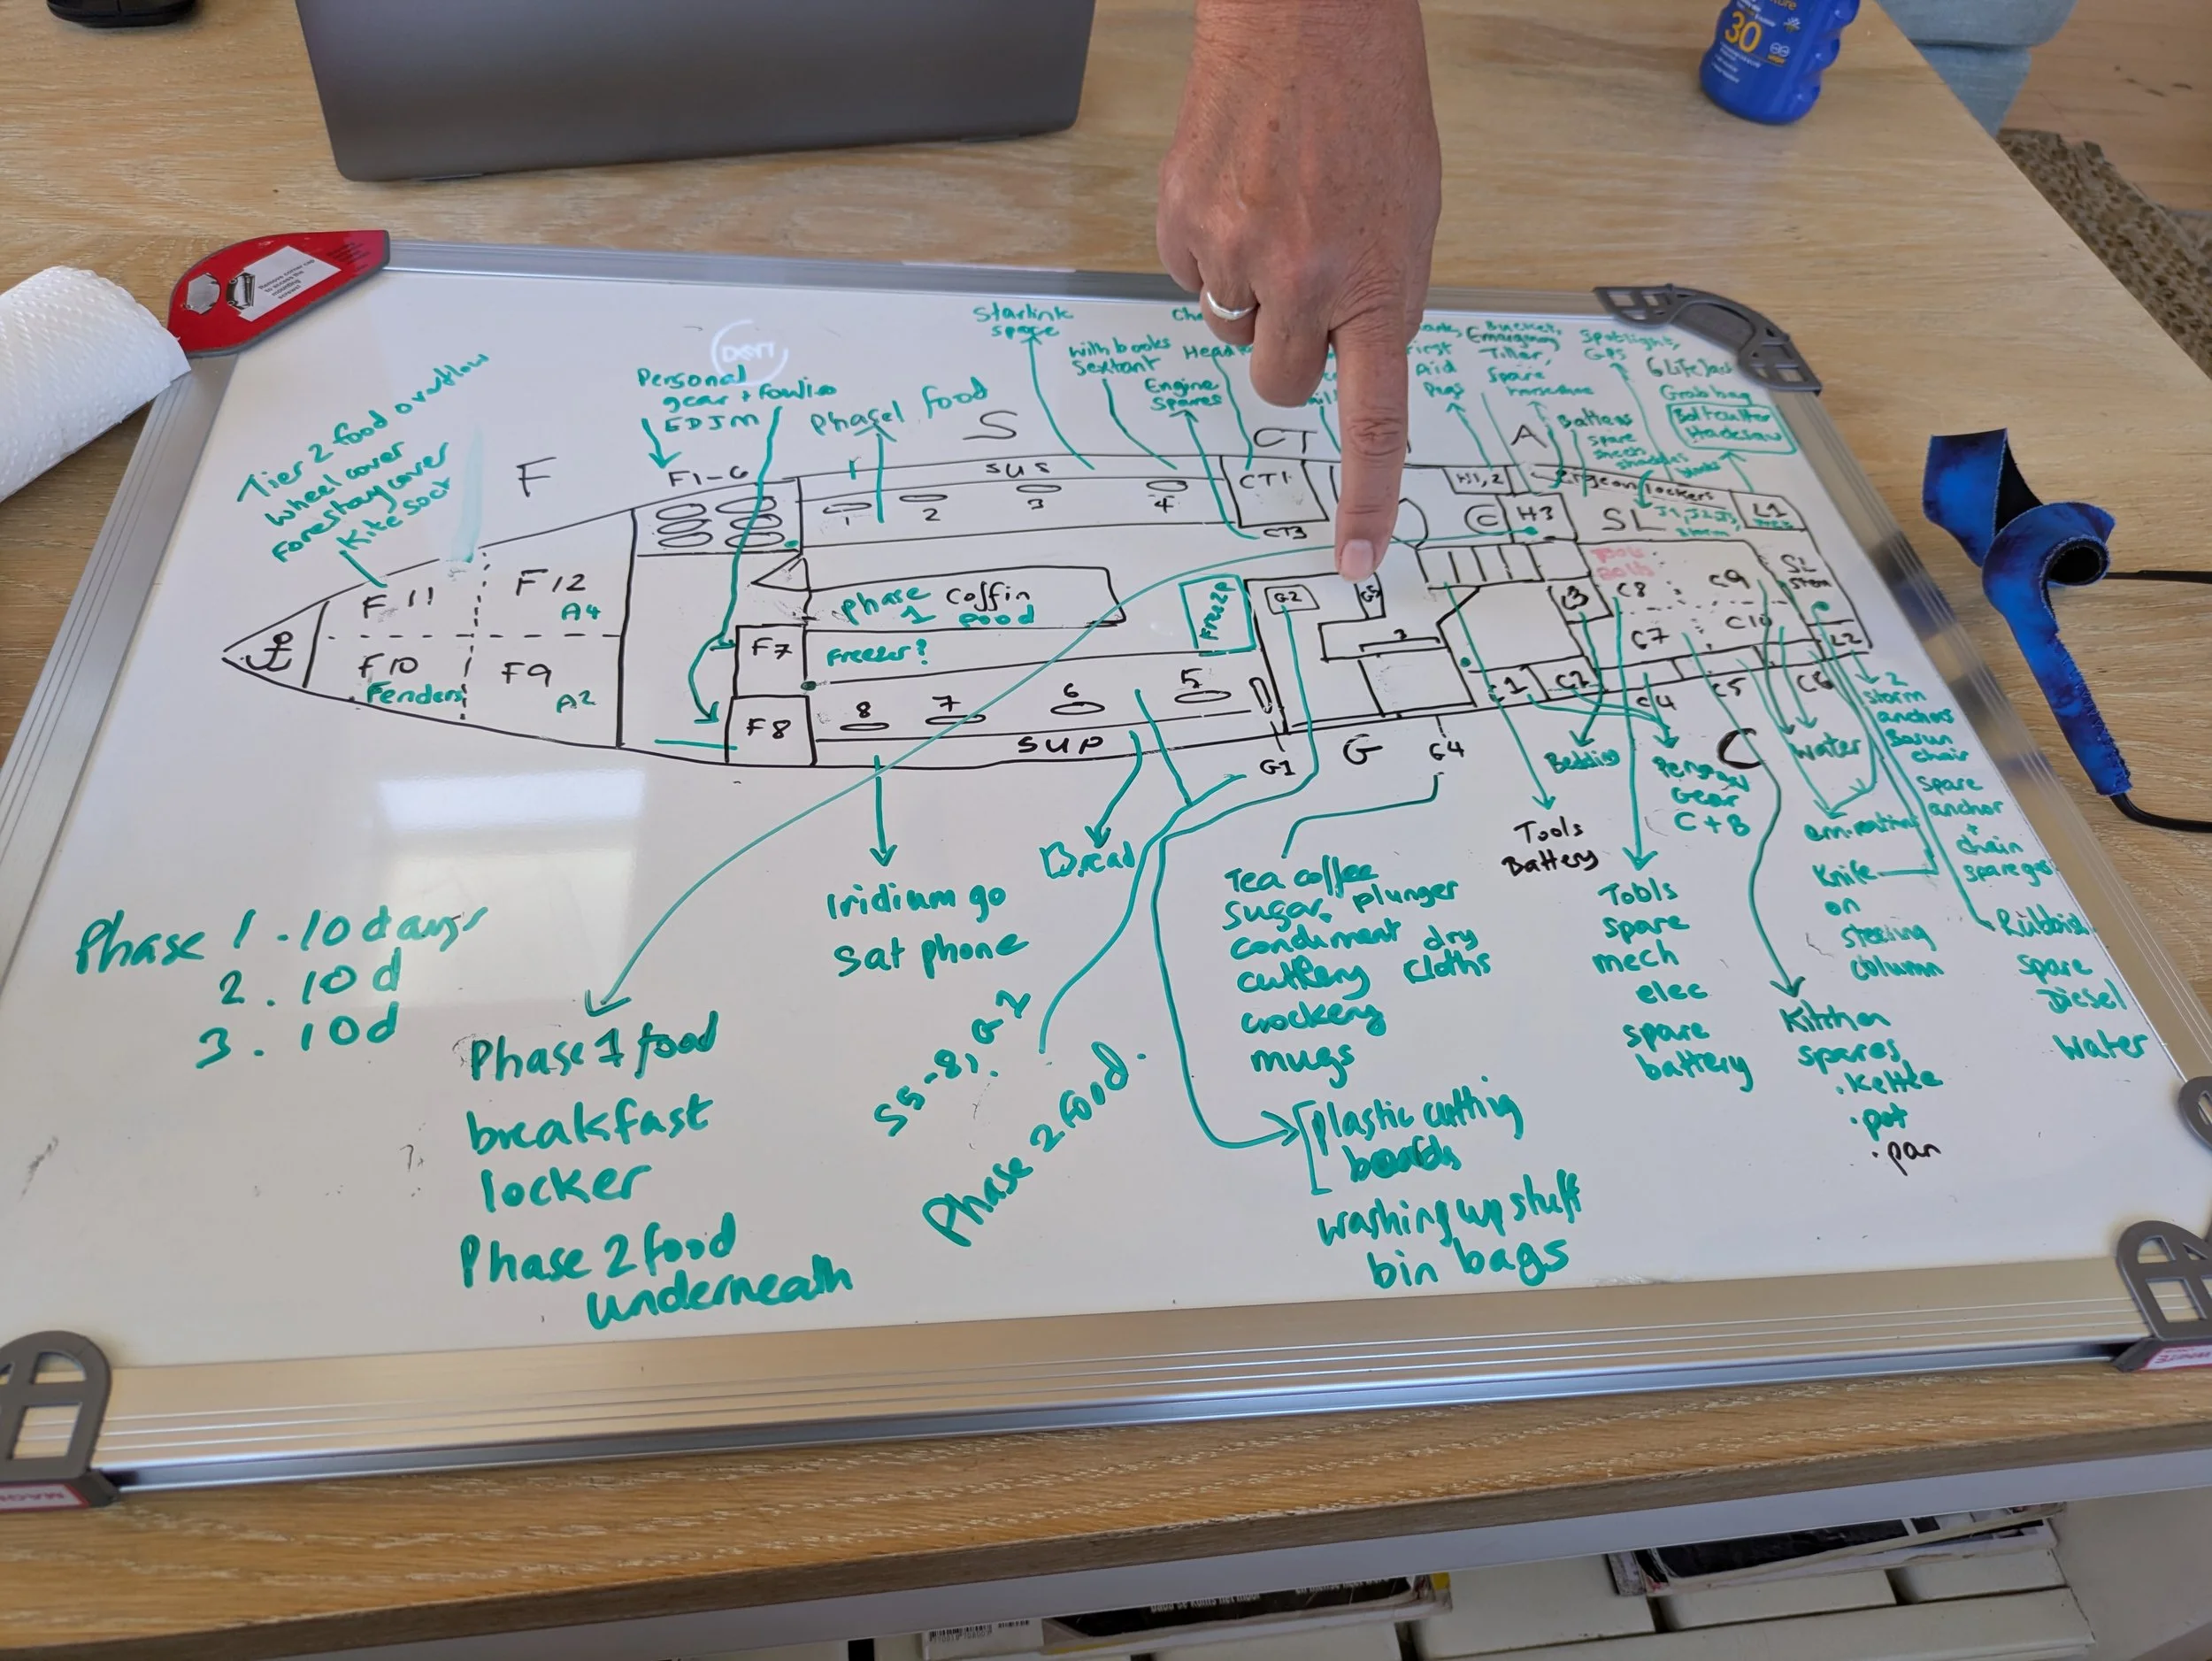 30
Starlink
space
with books
Sextant
Engine
Spares
First
Aid
Pegs
Bucket,
Emergency
Tiller,
Spare
horseshoe
Spotlight,
GPS
6 Life Jack
Grab bag
Boltcutter
Hacksaw
Battens
spare
sheets
shackles
blocks
Tier 2 food overflow
wheel cover
forestay cover
Kite sock
Personal
gear + foulies
EDJM
Phase 1 food
F
S
CT
A
F1-6
SUS
1
2
3
4
CT1
CT3
H1,2
H3
C
SL
J1, J2, J3,
L1
F 11
F 12
A4
F10
Fenders
F9
A2
F7
F8
Phase 1 food
Coffin
Freezer?
G2
G5
C8
C9
C7
C10
SL
Stern
L2
8
7
6
5
SUP
G1
G
G4
C1
C2
C3
C4
C5
C6
C
Bedding
Personal
Gear
C + B
Water
2
Storm
anchors
Bosun
chair
spare
anchor
+
chain
spare gas
Tools
Battery
Iridium go
Sat phone
Bread
Tea coffee
sugar, plunger
condiment dry
cutlery cloths
crockery
mugs
Tools
spare
mech
elec
spare
battery
Knife
on
steering
column
Rubbish
spare
Diesel
Water
Kitchen
spares
. Kettle
. pot
. pan
Phase 1 . 10 days
2 . 10 d
3 . 10d
Phase 1 food
breakfast
locker
Phase 2 food
underneath
S5-8, G2
Phase 2 food.
plastic cutting
boards
washing up stuff
bin bags